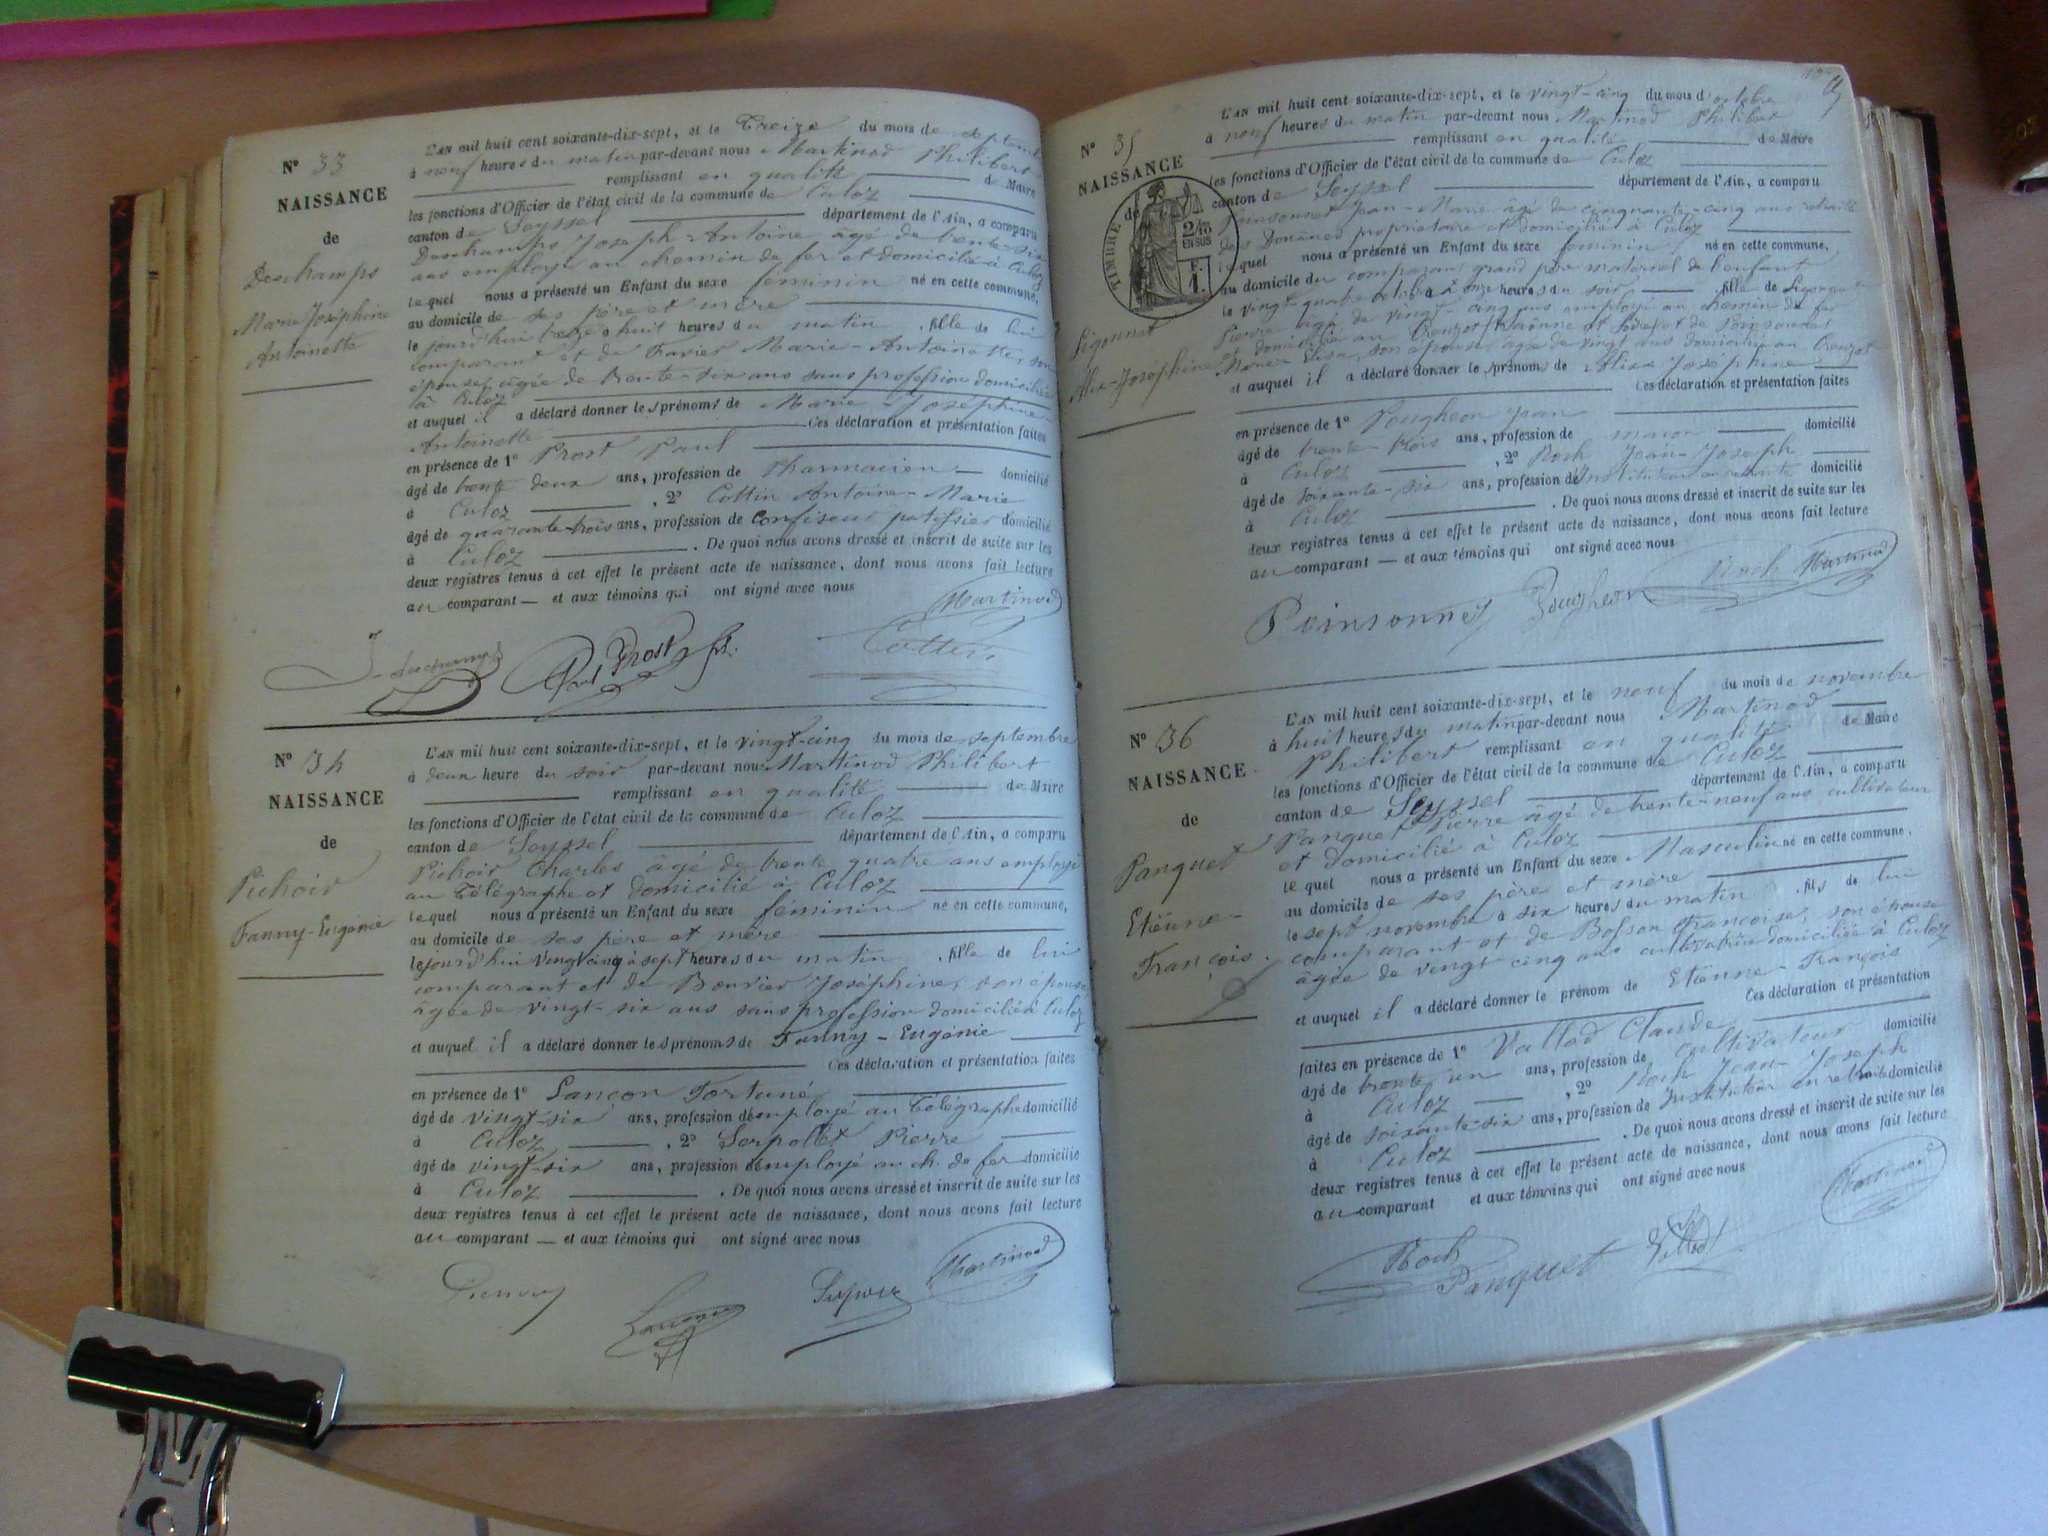 N° 33
NAISSANCE
de
Deschamps
Marie Joséphine
Antoinette
L'AN mil huit cent soixante-dix-sept, et le Treize du mois de septembre
à neuf heures du matin par-devant nous Martinod Philibert
remplissant en qualité de Maire
les fonctions d'Officier de l'état civil de la commune de Culoz
canton de Seyssel département de l'Ain, a comparu
Deschamps Joseph-Antoine âgé de trente-six
ans employé au chemin de fer et domicilié à Culoz
lequel nous a présenté un Enfant du sexe féminin né en cette commune,
au domicile de ses père et mère
le jourd'hui treize à huit heures du matin, fille de lui
comparant et de Travier Marie-Antoinette, son
épouse, âgée de trente-six ans sans profession domiciliée
à Culoz
et auquel il a déclaré donner les prénoms de Marie-Joséphine
Antoinette Ces déclaration et présentation faites
en présence de 1° Prost Paul
âgé de trente deux ans, profession de Pharmacien domicilié
à Culoz, 2° Cottin Antoine-Marie
âgé de quarante-trois ans, profession de Confiseur patissier domicilié
à Culoz. De quoi nous avons dressé et inscrit de suite sur les
deux registres tenus à cet effet le présent acte de naissance, dont nous avons fait lecture
au comparant — et aux témoins qui ont signé avec nous
Martinod
J. Deschamps Paul Prost Cottin
N° 34
NAISSANCE
de
Pichoir
Fanny-Eugénie
L'AN mil huit cent soixante-dix-sept, et le vingt-cinq du mois de septembre
à deux heure du soir par-devant nous Martinod Philibert
remplissant en qualité de Maire
les fonctions d'Officier de l'état civil de la commune de Culoz
canton de Seyssel département de l'Ain, a comparu
Pichoir Charles âgé de trente quatre ans employé
au Télégraphe et domicilié à Culoz
lequel nous a présenté un Enfant du sexe féminin né en cette commune,
au domicile de ses père et mère
le jourd'hui vingt cinq à sept heures du matin, fille de lui
comparant et de Bouvier Joséphine, son épouse
âgée de vingt-six ans sans profession domiciliée à Culoz
et auquel il a déclaré donner les prénoms de Fanny-Eugénie
Ces déclaration et présentation faites
en présence de 1° Lançon Fortuné
âgé de vingt-six ans, profession d'employé au Télégraphe domicilié
à Culoz, 2° Serpollet Pierre
âgé de vingt-six ans, profession d'employé au ch. de fer domicilié
à Culoz. De quoi nous avons dressé et inscrit de suite sur les
deux registres tenus à cet effet le présent acte de naissance, dont nous avons fait lecture
au comparant — et aux témoins qui ont signé avec nous
Martinod
N° 35
NAISSANCE
de
TIMBRE
2/10
EN SUS
F.
1.
Ligonnet
Alix-Joséphine
L'AN mil huit cent soixante-dix-sept, et le vingt-cinq du mois d'octobre
à neuf heures du matin par-devant nous Martinod Philibert
remplissant en qualité de Maire
les fonctions d'Officier de l'état civil de la commune de Culoz
canton de Seyssel département de l'Ain, a comparu
Poinsonnet Jean-Marie âgé de cinquante-cinq ans retraité
des Douânes propriétaire et domicilié à Culoz
lequel nous a présenté un Enfant du sexe féminin né en cette commune,
au domicile du comparant grand père maternel de l'enfant
le vingt quatre octobre à onze heures du soir, fille de Ligonnet
Pierre âgé de vingt-cinq ans employé au chemin de fer
domicilié au Creuzot et de Poinsonnet
Marie son épouse, âgée de vingt ans domiciliée au Creuzot
et auquel il a déclaré donner les prénoms de Alix Joséphine
Ces déclaration et présentation faites
en présence de 1° Pougheon Jean
âgé de trente-trois ans, profession de maçon domicilié
à Culoz, 2° Roch Jean-Joseph
âgé de soixante-six ans, profession d'Instituteur en retraite domicilié
à Culoz. De quoi nous avons dressé et inscrit de suite sur les
deux registres tenus à cet effet le présent acte de naissance, dont nous avons fait lecture
au comparant — et aux témoins qui ont signé avec nous
Poinsonnet Pougheon Roch Martinod
N° 36
NAISSANCE
de
Panquet
Etiènne-
François.
L'AN mil huit cent soixante-dix-sept, et le neuf du mois de novembre
à huit heures du matin par-devant nous Martinod
Philibert remplissant en qualité de Maire
les fonctions d'Officier de l'état civil de la commune de Culoz
canton de Seyssel département de l'Ain, a comparu
Panquet Pierre âgé de trente-neuf ans cultivateur
et domicilié à Culoz
lequel nous a présenté un Enfant du sexe Masculin né en cette commune,
au domicile de ses père et mère
le sept novembre à six heures du matin, fils de lui
comparant et de Bosson Françoise, son épouse
âgée de vingt cinq ans cultivatrice domiciliée à Culoz
et auquel il a déclaré donner le prénom de Etiènne-François
Ces déclaration et présentation
faites en présence de 1° Vallod Claude
âgé de trente un ans, profession de cultivateur domicilié
à Culoz, 2° Roch Jean-Joseph
âgé de soixante-six ans, profession de Instituteur en retraite domicilié
à Culoz. De quoi nous avons dressé et inscrit de suite sur les
deux registres tenus à cet effet le présent acte de naissance, dont nous avons fait lecture
au comparant et aux témoins qui ont signé avec nous
Martinod
Roch Panquet Vallod